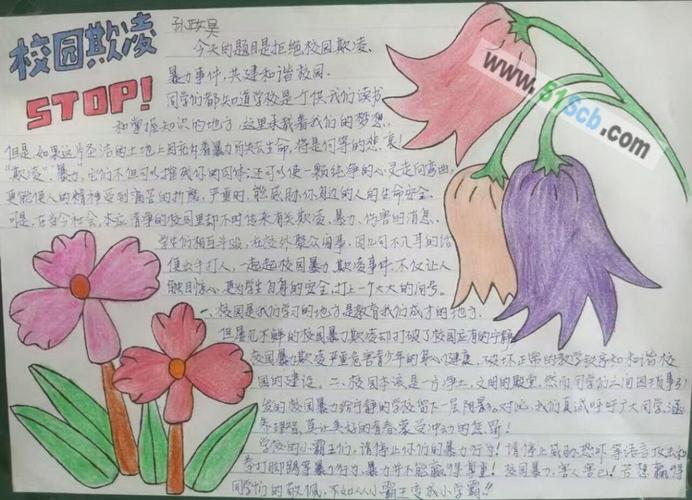 校园欺凌
STOP!
孙政昊
今天的题目是拒绝校园欺凌、
暴力事件,共建和谐校园。
同学们都知道学校是个供我们读书
和掌握知识的地方,这里承载着我们的梦想。
但是,如果这片圣洁的土地上因充斥着暴力而失去生命,将是何等的悲哀!
"欺凌"、暴力,它们不但可以摧残你的肉体;还可以使一颗纯净的心灵走向弯曲,
更能使人的精神受到痛苦的折磨,严重时,能威胁你身边的人的生命安全。
可是,在当今社会,本应清净的校园里却不时传来有关欺凌、暴力、伤害的消息。
学生们相互斗殴,在校外聚众闹事,因几句不入耳的话
便出手打人,一起起校园暴力、欺凌事件,不仅让人
触目惊心,更为学生自身的安全,打上一个大大的问号。
一、校园是我们学习的地方是教育我们成才的地方。
但屡见不鲜的校园暴力欺凌却打破了校园应有的宁静
校园暴力欺凌严重危害青少年的身心健康,破坏正常的教学秩序和和谐校
园的建设。二、校园本该是一方净土,文明的殿堂,然而同学们之间因琐事引
发的校园暴力给宁静的学校留下一层阴影。对此,我们真诚呼吁广大同学,
莫让美好的青春蒙受冲动的惩罚!
学校的小霸王们,请停止你们的暴力行为!请停止威胁恐吓等语言攻击和
拳打脚踢等暴力行为,暴力并不能赢得尊重!校园暴力,害人害己!若想赢得
同学们的敬佩,不如从小霸王变成小学霸!!
www.515cb.com